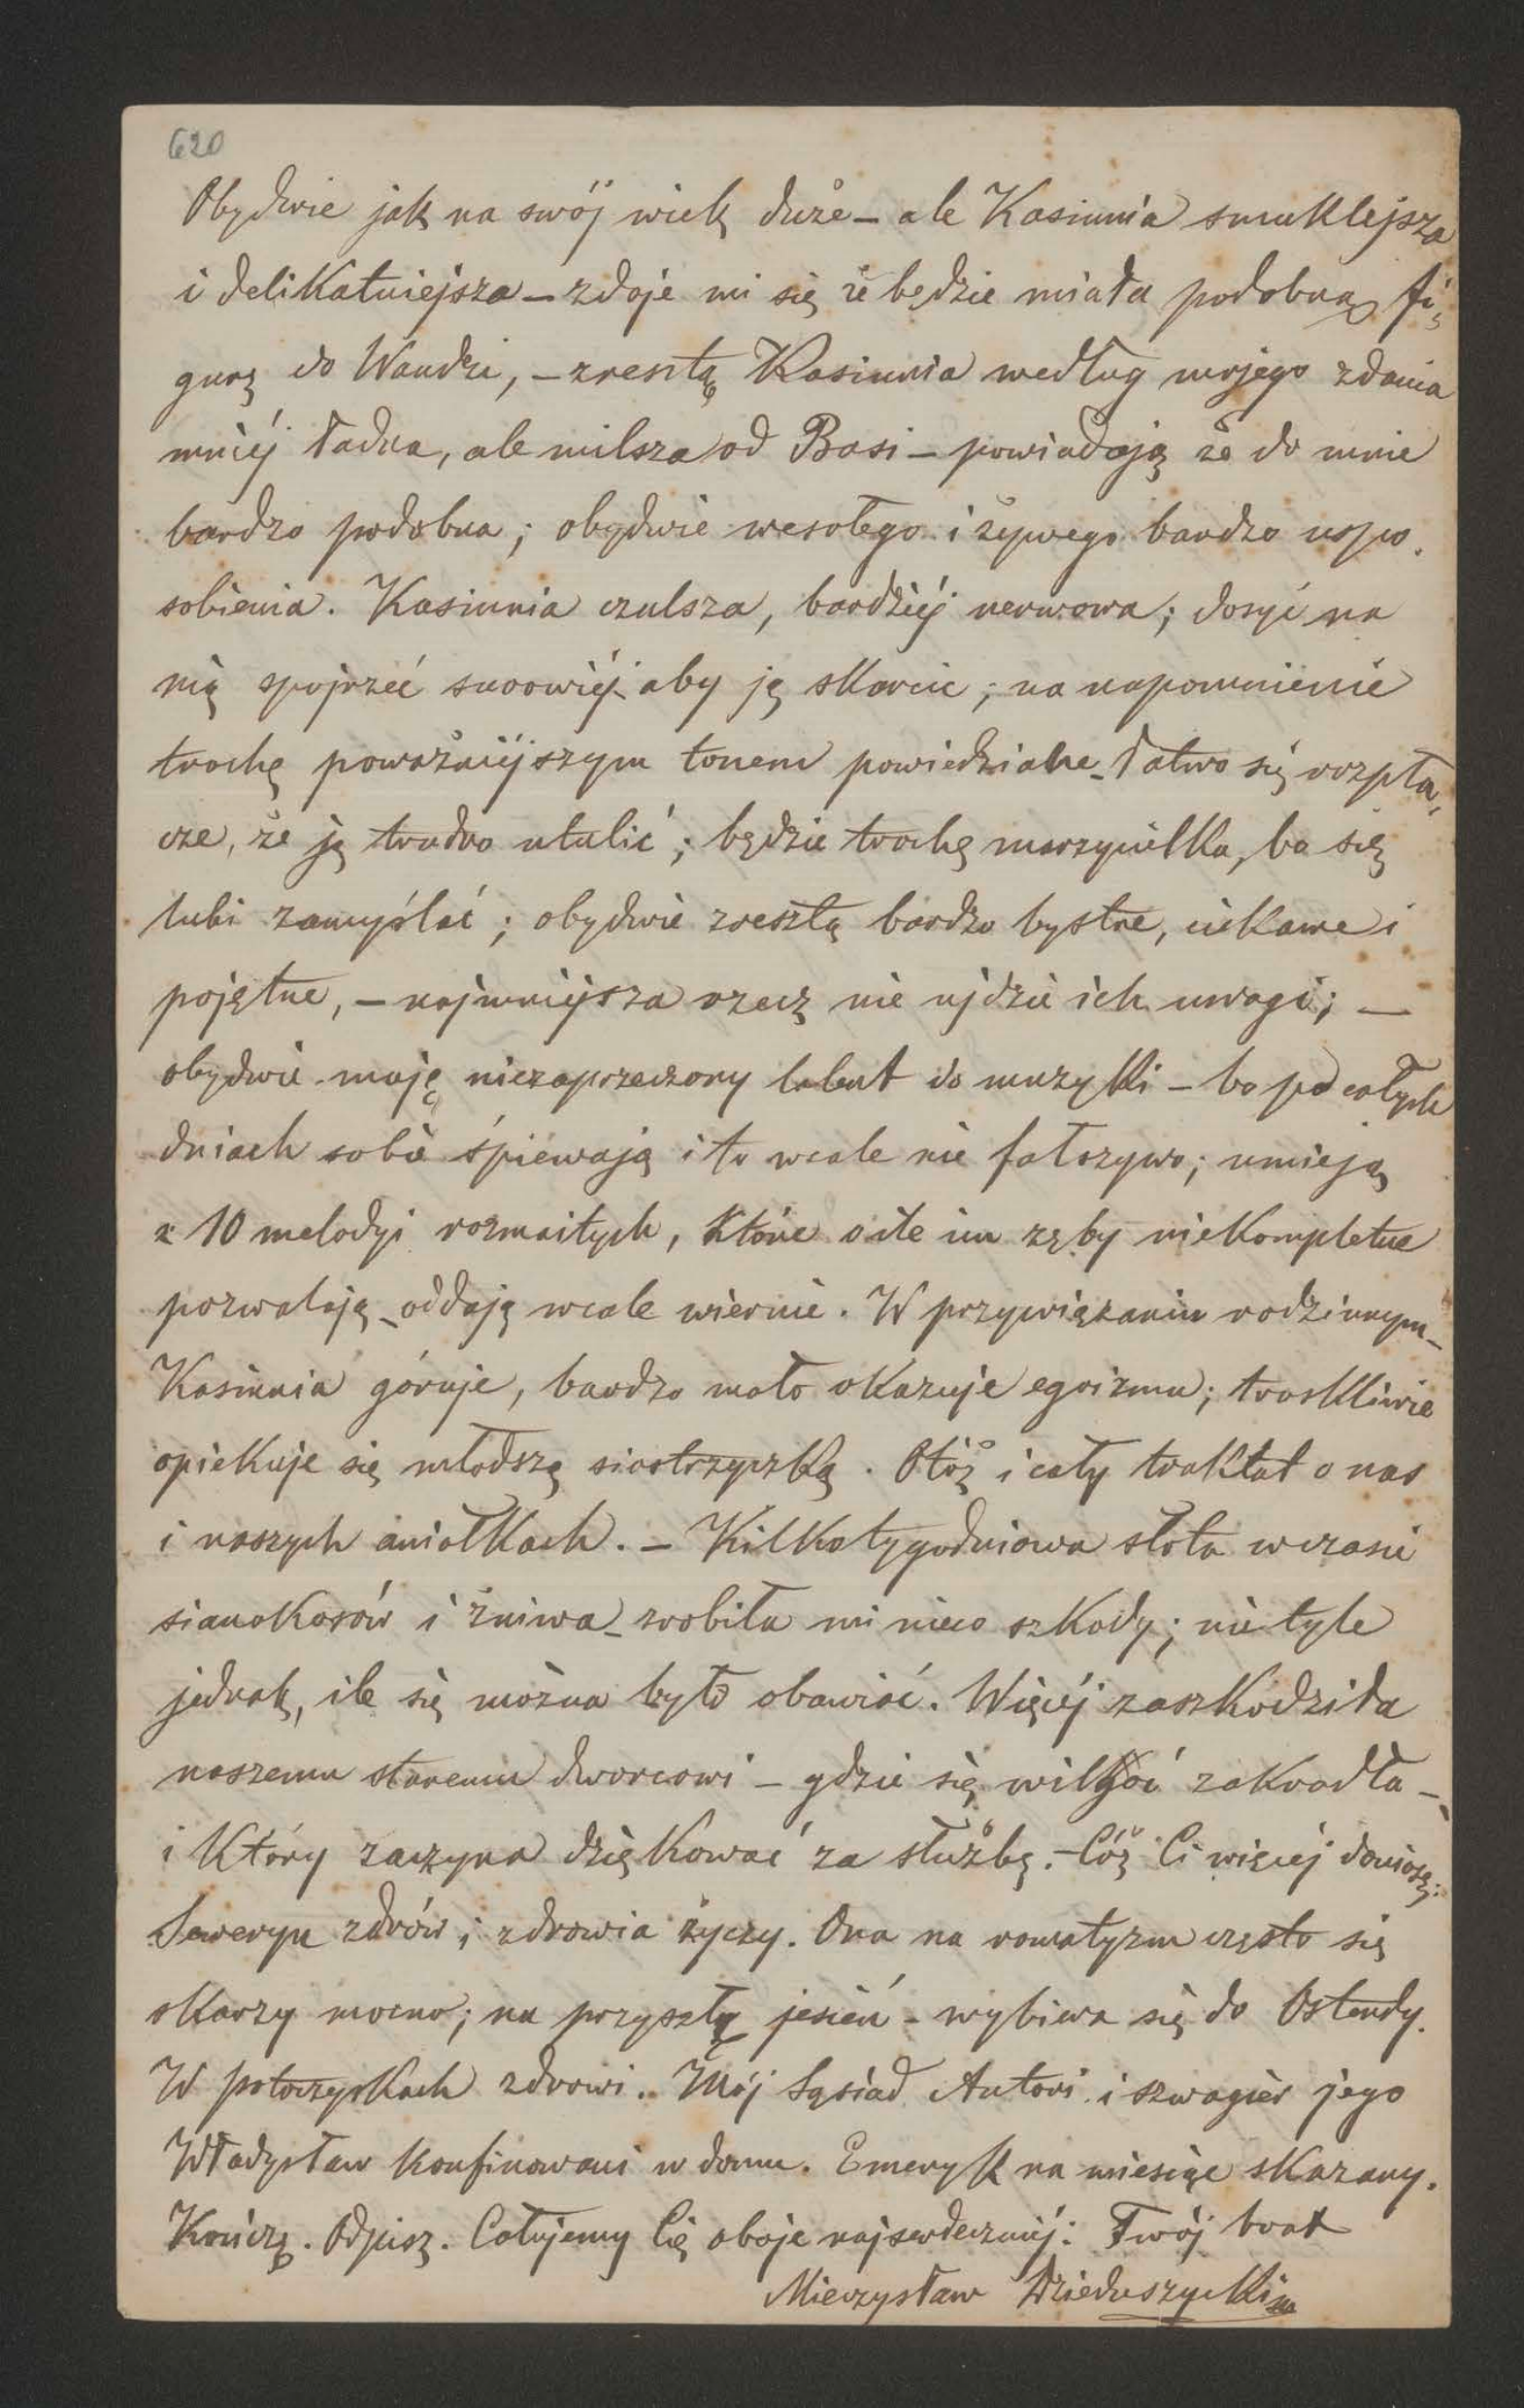 620
Obydwie jak na swój wiek duże – ale Kasiunia smuklejsza
i delikatniejsza – zdaje mi się że będzie miała podobną fi-
gurę do Wandzi, – zresztą Kasiunia według mojego zdania
mniéj ładna, ale milsza od Basi – powiadają że do mnie
bardzo podobna; obydwie wesołego i żywego bardzo uspo-
sobienia. Kasiunia czulsza, bardziéj nerwowa; dosyć na
nią spojrzeć surowiéj aby ją skarcić; na napomnienie
trochę poważniéjszym tonem powiedziane – łatwo się rozpła-
cze, że ją trudno utulić; będzie trochę marzycielka, bo się
lubi zamyślać; obydwie zresztą bardzo bystre, ciekawe i
pojętne, – najmniejsza rzecz nie ujdzie ich uwagi; –
obydwie mają niezaprzeczony talent do muzyki – bo po całych
dniach sobie śpiewają i to wcale nie fałszywo; umieją
z 10 melodyi rozmaitych, które o ile im zęby niekompletne
pozwalają – oddają wcale wiernie. W przywiązaniu rodzinnym –
Kasiunia góruje, bardzo mało okazuje egoizmu; troskliwie
opiekuje się młodszą siostrzyczką. Otóż i cały traktat o nas
i naszych aniołkach. – Kilkotygodniowa słota w czasie
sianokosów i żniwa – zrobiła mi nieco szkody; nie tyle
jednak, ile się można było obawiać. Więcéj zaszkodziła
naszemu staremu dworcowi – gdzie się wilgoć zakradła –
i który zaczyna dziękować za służbę. – Cóż Ci więcéj doniosę;
Seweryn zdrów; zdrowia życzy. Ona na romatyzm często się
skarzy mocno; na przyszłą jesień – wybiera się do Ostendy.
W potoczyskach zdrowi. Mój Sąsiad Antoni i szwagier jego
Władysław konfinowani w domu. Emeryk na miesiąc skazany.
Kończę. Odpisz. Całujemy Cię oboje najserdeczniéj: Twój brat
Mieczysław Dzieduszycki